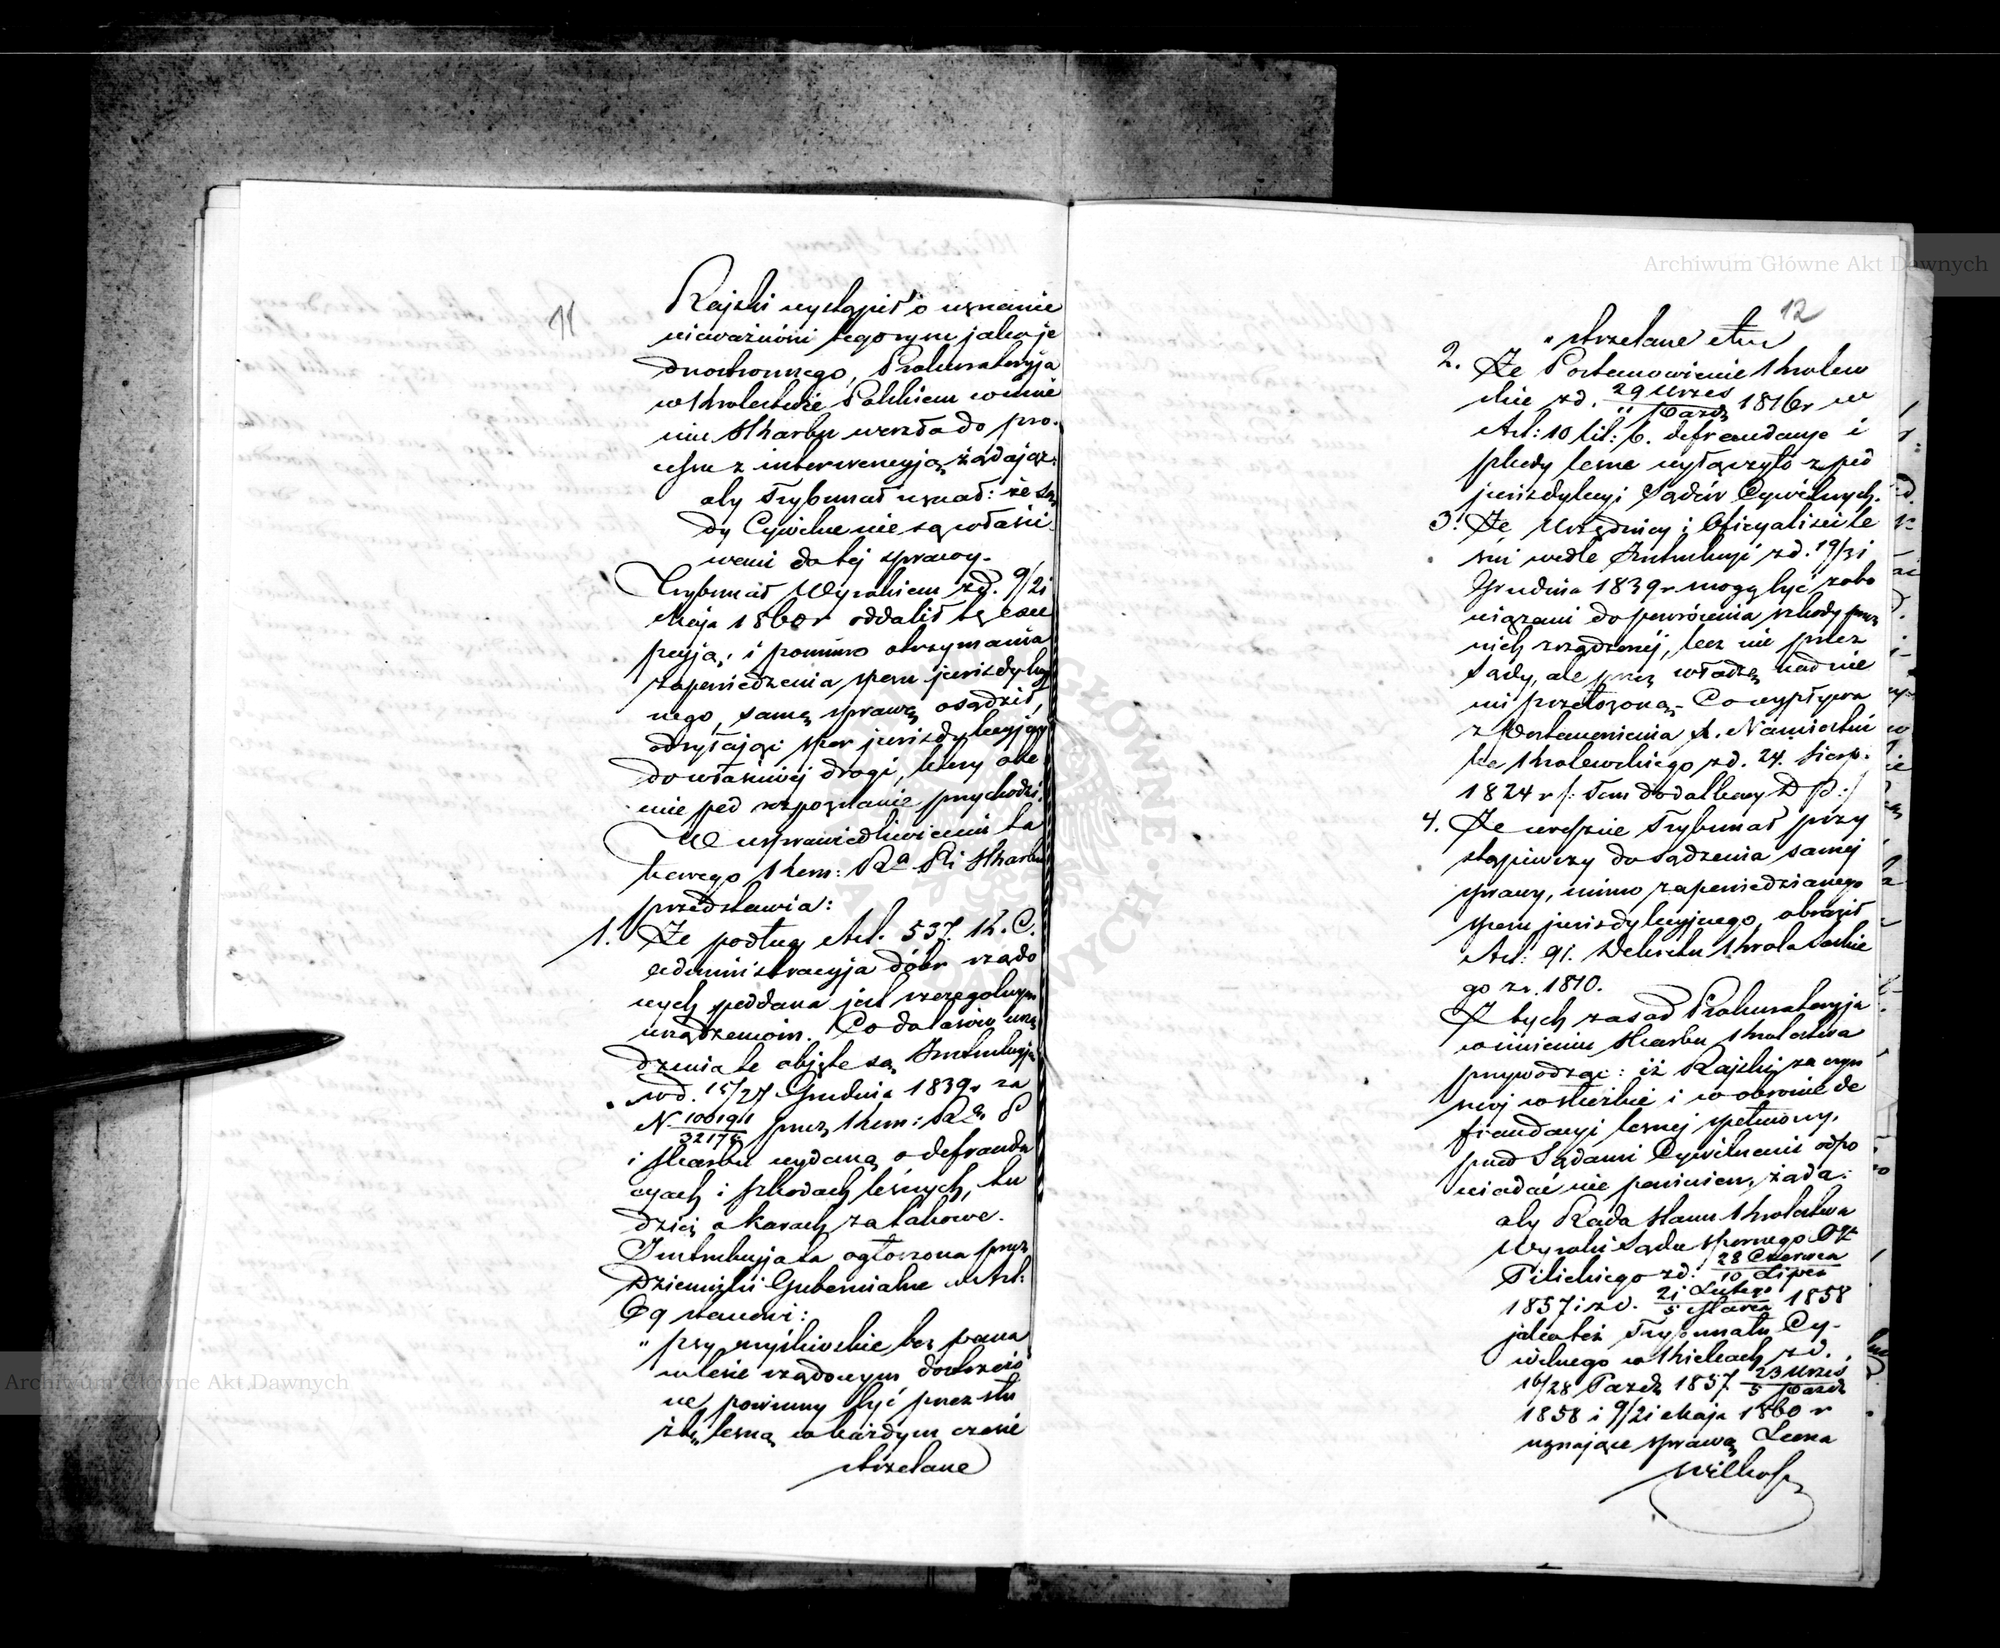 11
Rajski wystąpił o uznanie
nieważności tegorym jako je
dnostronnego, Prokuratoryja
w Królestwie Polskiem w imie
niu Skarbu weszła do pro-
cessu z interwencyją, żądając:
aby Trybunał uznał: że Są
dy Cywilne nie są właści
wemi do tej sprawy.
Trybunał Wyrokiem z d. 9/21
Maja 1860 r oddalił tę exce
pcyją, i pomimo otrzymania
zapowiedzenia sporu jurisdykcyj
nego, samą sprawę osądził,
odsyłając spór jurisdykcyjny
do właściwej drogi, który obe
cnie pod rozpoznanie przychodzi.
W usprawiedliwieniu ta
kowego Kom: Rz. P. i Skarbu
przedstawia:
1. Że podług Art. 537. K. C.
administracyja dóbr rządo
wych poddana jest szczególnym
urządzeniom. Co do lasów urzą
dzenia te objęte są Instrukcyją
z d. 15/27 Grudnia 1839 r za
N 100191/32178 przez Kom: Rz. P
i Skarbu wydaną o defrauda
cyach i szkodach leśnych, tu
dzież o karach za takowe.
Instrukcyja ta ogłoszona przez
Dzienniki Gubernialne w Art:
69 stanowi:
„psy myśliwskie bez pana
w lesie rządowym dostrzeżo
ne, powinny być przez słu
żbę leśną w każdym czasie
strzelane
12
„strzelane etc
2. Że Postanowienie Królew
skie z d. 29 Wrześ/11 Paźdz 1816 r w
Art: 10 lit: b. defraudacje i
szkody leśne wyłączyło z pod
jurisdykcyi Sądów Cywilnych.
3. Że, Urzędnicy i Oficyaliści le
śni wedle Instrukcyi z d. 19/31
Grudnia 1839 r mogą być zobo
wiązani do powrócenia szkody przez
nich zrządzonéj, lecz nie przez
Sądy, ale przez władzę nad nie
mi przełożoną. Co wypływa
z Postanowienia X. Namiestni
ka Królewskiego z d. 24. Sierp.
1824 r /: Tom dodatkowy D P :/
4. Że wreszcie Trybunał przy
stąpiwszy do sądzenia samej
sprawy, mimo zapowiedzianego
sporu jurisdykcyjnego, obraził
Art: 91. Dekretu Króla Saskie
go z r. 1810.
Z tych zasad Prokuratoryja
w imieniu Skarbu Królestwa
przywodząc: iż Rajski za czyn
swój w służbie i w obronie de
fraudacyi leśnej spełniony,
przed Sądami Cywilnemi odpo
wiadać nie powinien, żąda:
aby Rada Stanu Królestwa
Wyroki Sądu spornego Okr
Pilickiego z d. 28 Czerwca/10 Lipca
1857 i z d. 21 Lutego/5 Marca 1858
jako też Trybunału Cy-
wilnego w Kielcach z d.
16/28 Paźdz 1857. 23 Wrześ/5 Paźdz
1858 i 9/21 Maja 1860 r
uznające sprawę Leona
Wilkosz
Archiwum Główne Akt Dawnych
Archiwum Główne Akt Dawnych